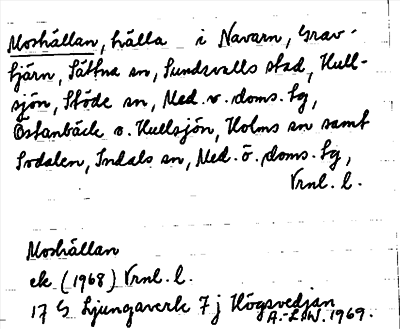 Moshällan, hälla i Navarn, Grav-
tjärn, Sättna sn, Sundsvalls stad, Hull-
sjön, Stöde sn, Med. v. doms. sg,
Östanbäck o. Hullsjön, Holms sn samt
Sodalen, Indals sn, Med. ö. doms. sg,
Vrnl. l.
Moshällan
ek (1968) Vrnl. l.
17 G Ljungaverk 7 j Högsvedjan
A.-L.W. 1969.